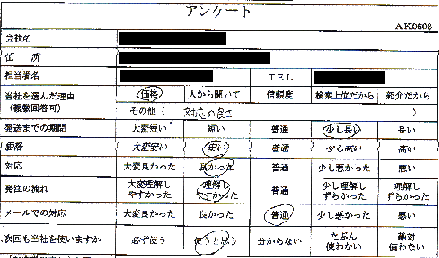 アンケート
AK0608
会社名
住所
担当者名 TEL
当社を選んだ理由 価格 人から聞いて 信頼度 検索上位だから 紹介だから
(複数回答可) その他( 対応の良さ )
発送までの期間 大変短い 短い 普通 少し長い 長い
価格 大変安い 安い 普通 少し高い 高い
対応 大変良かった 良かった 普通 少し悪かった 悪い
発注の流れ 大変理解しやすかった 理解しやすかった 普通 少し理解しずらかった 理解しずらい
メールでの対応 大変良かった 良かった 普通 少し悪かった 悪い
次回も当社を使いますか 必ず使う 使うと思う 分からない たぶん使わない 絶対使わない